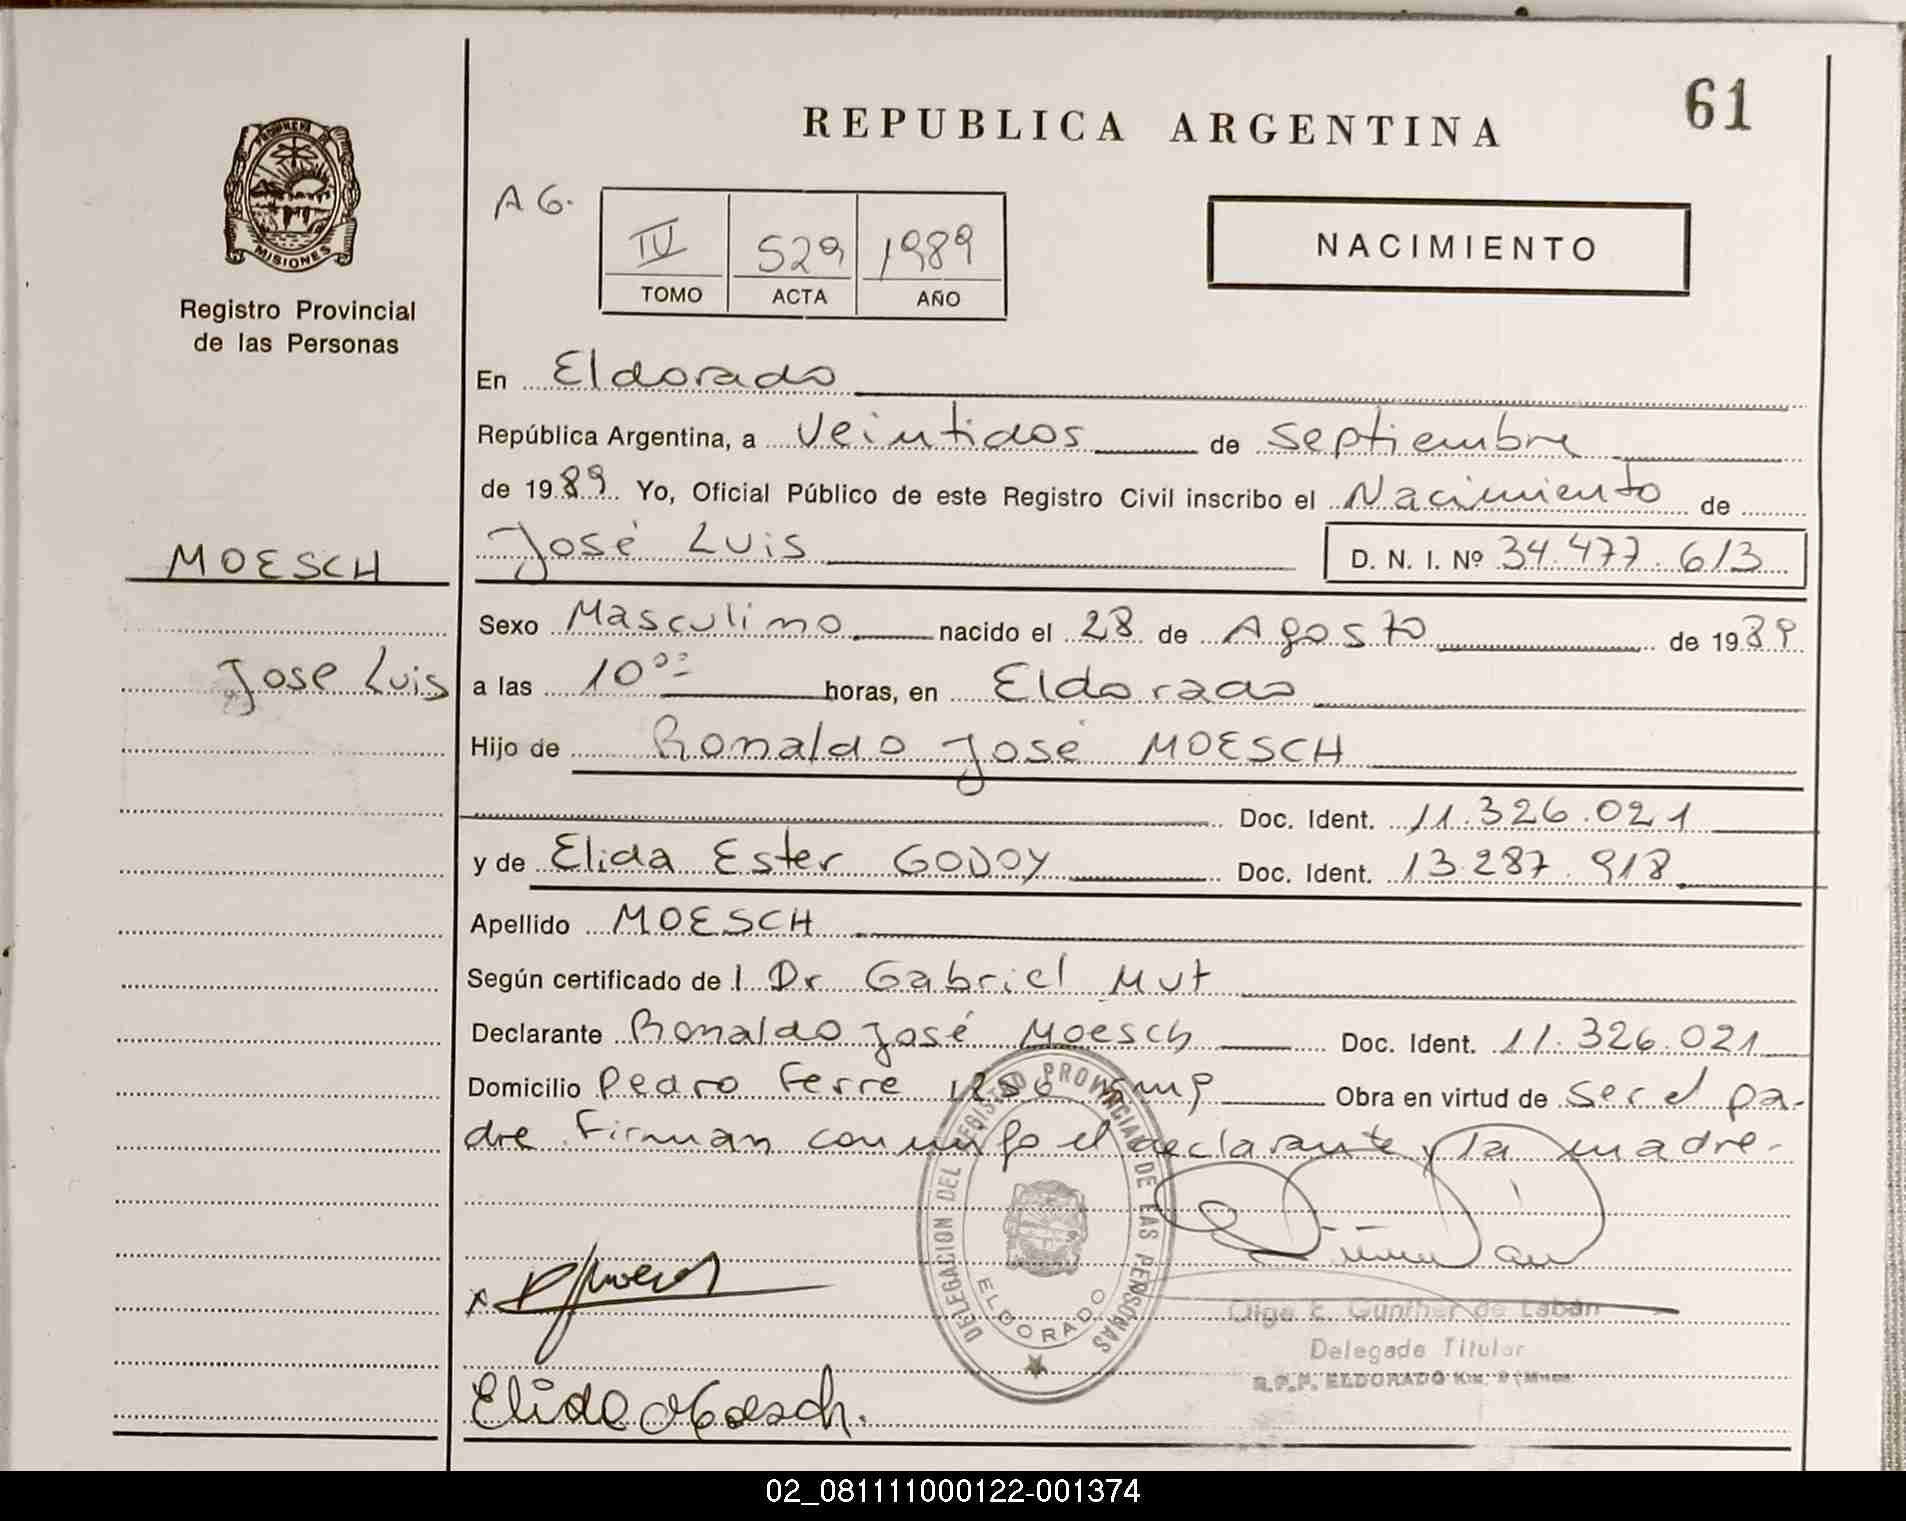 61
REPUBLICA ARGENTINA
PROVINCIA
MISIONES
Registro Provincial
de las Personas
A G.
IV 529 1989
TOMO ACTA AÑO
NACIMIENTO
En Eldorado
República Argentina, a veintidos de septiembre
de 1989. Yo, Oficial Público de este Registro Civil inscribo el Nacimiento de
MOESCH
José Luis D. N. I. Nº 34.477.613
Sexo Masculino nacido el 28 de Agosto de 1989
Jose Luis
a las 10⁰⁰ horas, en Eldorado
Hijo de Ronaldo José MOESCH
Doc. Ident. 11.326.021
y de Elida Ester GODOY Doc. Ident. 13.287.918
Apellido MOESCH
Según certificado de l Dr Gabriel Mut
Declarante Ronaldo José Moesch Doc. Ident. 11.326.021
Domicilio Pedro Ferre Obra en virtud de ser el pa-
dre. Firman conmigo el declarante y la madre-
DELEGACION DEL REGISTRO PROVINCIAL DE LAS PERSONAS
ELDORADO
Olga E. Gunther de Labán
Delegada Titular
R.P.P. ELDORADO Km. 9 (Mnes
Elida Moesch.
02_081111000122-001374